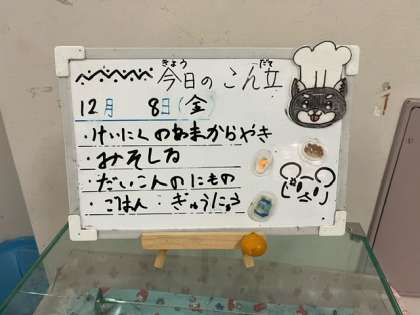 きょう だて
今日のこん立
12月 8日(金)
・けいにくのあまからやき
・みそしる
・だいこんのにもの
・ごはん:ぎゅうにゅう